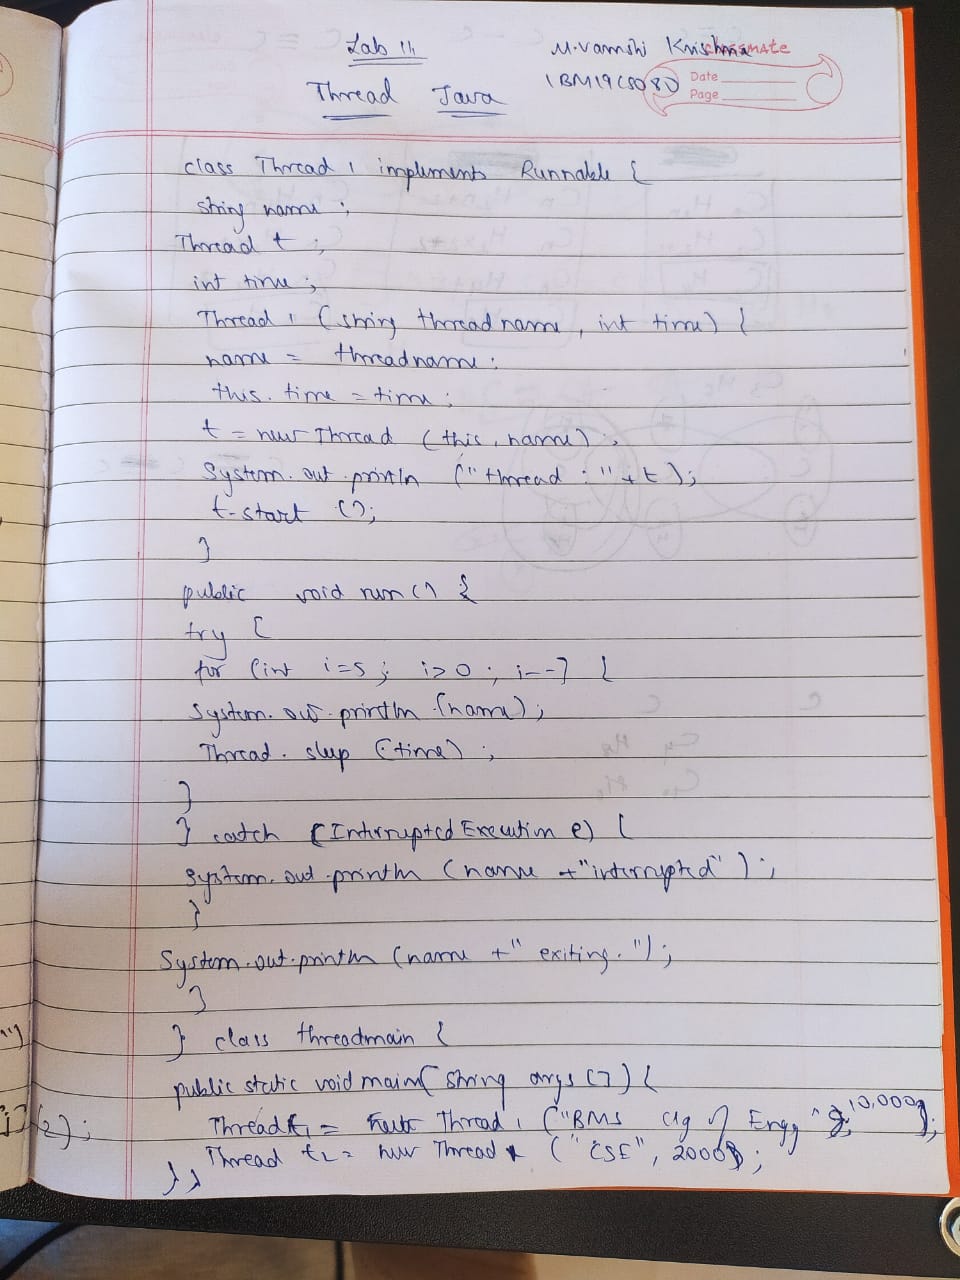 Lab 11
Thread Java
M.Vamshi Krishna
1BM19CS080
classmate
Date
Page
class Thread1 implements Runnable {
string name ;
Thread t ;
int time ;
Thread1 (string threadname, int time) {
name = threadname;
this.time = time;
t = new Thread (this, name);
System.out.println ("thread : "+t);
t.start ();
}
public void run() {
try {
for (int i=5 ; i>0 ; i--) {
System.out.println (name);
Thread.sleep (time) ;
}
} catch (Interrupted Execution e) {
System.out.println (name +"interrupted" );
}
System.out.println (name +" exiting.");
}
} class threadmain {
public static void main(string args []) {
Thread t1 = new Thread1 ("BMS Clg of Engg", 10,000);
Thread t2 = new Thread ("CSE", 2000);
}}